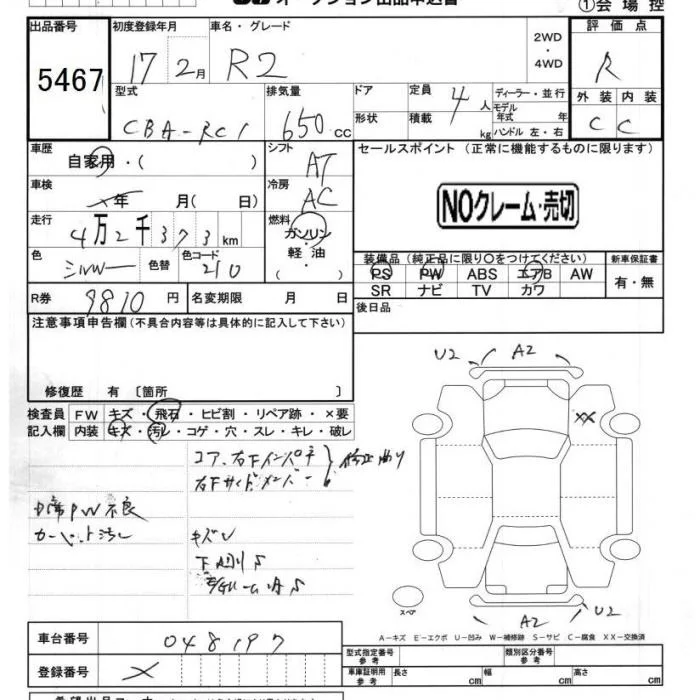 オークション出品申込書
①会場控
出品番号
5467
初度登録年月
17 2月
車名・グレード
R2
2WD
・
4WD
評価点
R
型式
CBA-RC1
排気量
650 cc
ドア
形状
定員
4 人
積載
kg
ディーラー・並行
モデル
年式 年
ハンドル 左・右
外装 内装
C C
車歴
自家用・( )
シフト
AT
セールスポイント (正常に機能するものに限ります)
車検
年 月( 日)
冷房
AC
NOクレーム・売切
走行
4万2千373km
燃料
ガソリン
・
軽油
( )
色
シルバー
色替
色コード
210
装備品(純正品に限り○をつけてください)
新車保証書
PS PW ABS エアB AW
SR ナビ TV カワ
有・無
R券
9810 円
名変期限 月 日
後日品
注意事項申告欄(不具合内容等は具体的に記入して下さい)
修復歴 有 〔箇所 〕
U2 A2
検査員 FW キズ・飛石・ヒビ割・リペア跡・×要
記入欄 内装 キズ・汚レ・コゲ・穴・スレ・キレ・破レ
XX
コア、右下インパネ
右下サイドメンバー
修正曲り
PW不良
カーペット汚レ
キズU
スペア
A2 U2
A-キズ E-エクボ U-凹み W-補修跡 S-サビ C-腐食 XX-交換済
車台番号
048197
型式指定番号
参考
類別区分番号
参考
登録番号
X
車庫証明用
参考
長さ cm 幅 cm 高さ cm